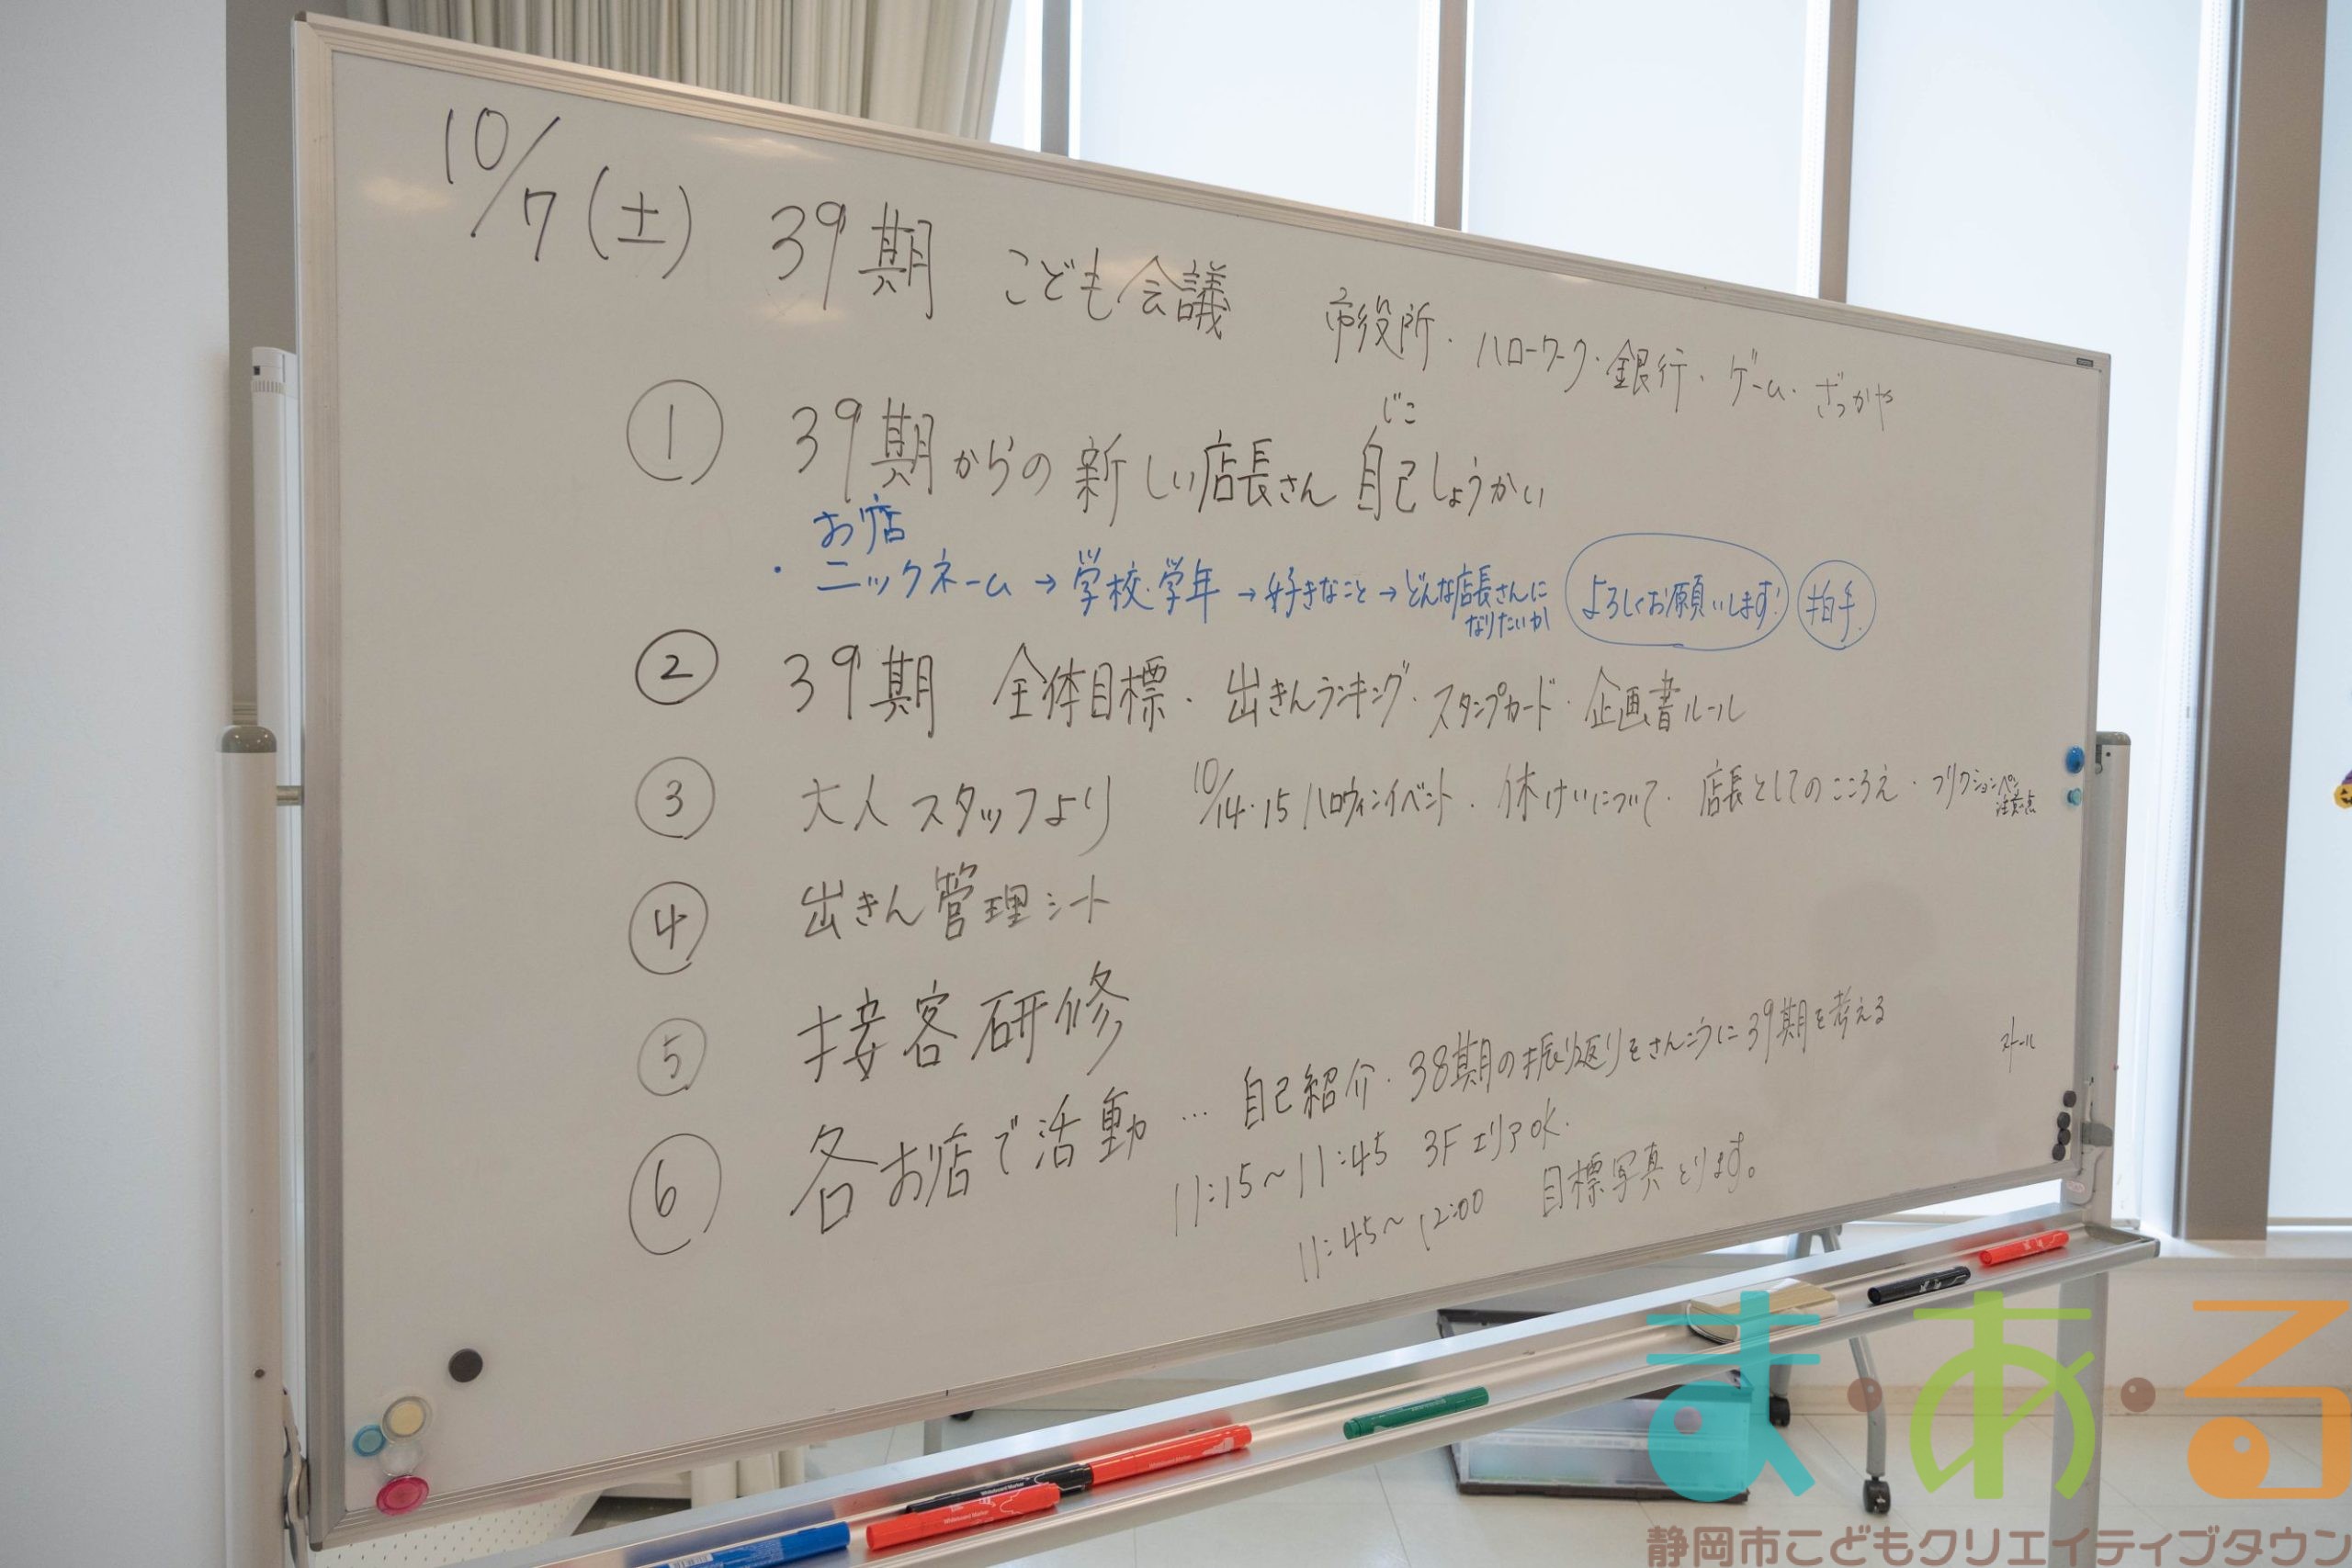 10/7(土) 39期 こども会議
市役所・ハローワーク・銀行・ゲーム・ざっかや
① 39期からの新しい店長さん 自己しょうかい
じこ
お店
・ニックネーム→学校・学年→好きなこと→どんな店長さんに
なりたいか
よろしくお願いします!
拍手
② 39期 全体目標・出きんランキング・スタンプカード・企画書ルール
③ 大人スタッフより 10/14・15 ハロウィンイベント・休けいについて・店長としてのこころえ・フリクションペン
注意点
④ 出きん管理シート
⑤ 接客研修
⑥ 各お店で活動…自己紹介・38期の振り返りをさんこうに39期を考える
11:15~11:45 3FエリアOK.
11:45~12:00 目標写真とります。
Whiteboard Marker
Whiteboard Marker
ま・あ・る
静岡市こどもクリエイティブタウン